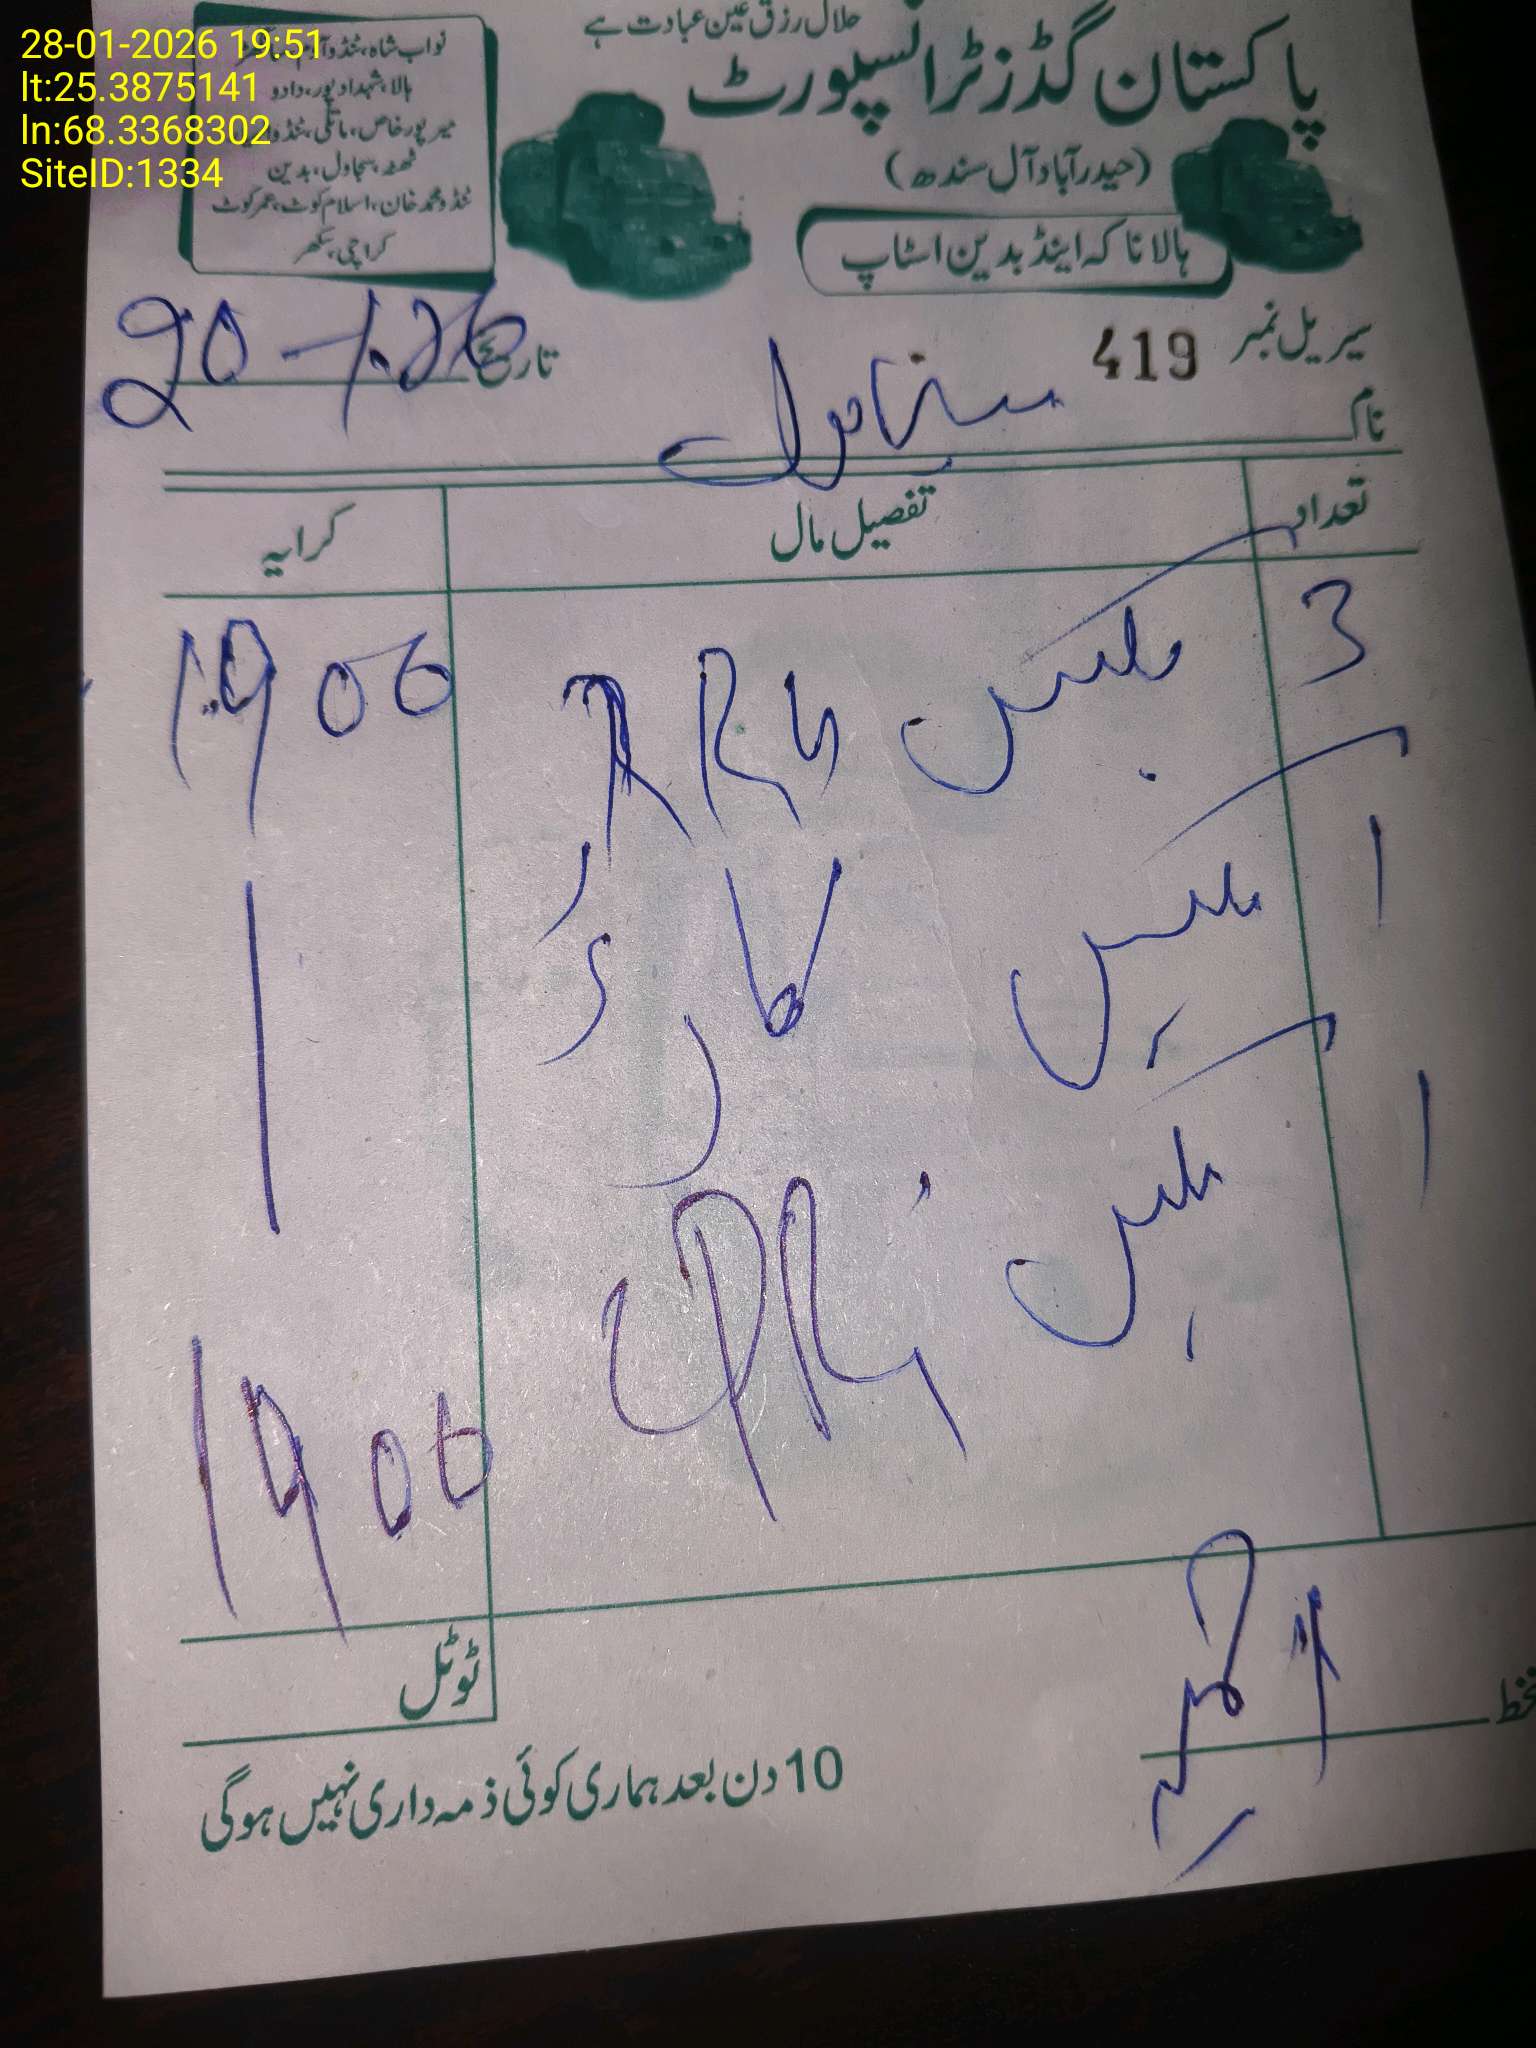 28-01-2026 19:51
lt:25.3875141
ln:68.3368302
SiteID:1334
حلال رزق عین عبادت ہے
پاکستان گڈز ٹرانسپورٹ
(حیدرآباد آل سندھ)
ہالا ناکہ اینڈ بدین اسٹاپ
نواب شاہ، ٹنڈو آدم،
ہالا، شہداد پور، دادو
میرپور خاص، ماتلی، ٹنڈو
ٹھٹھہ، سجاول، بدین
ٹنڈو محمد خان، اسلام کوٹ، عمر کوٹ
کراچی، سکھر
سیریل نمبر 419 تاریخ 20-1.26
نام
تعداد تفصیل مال کرایہ
3 بکس RRU 1900
1 بکس کارڈ
1 بکس
1900
ٹوٹل
10 دن بعد ہماری کوئی ذمہ داری نہیں ہوگی